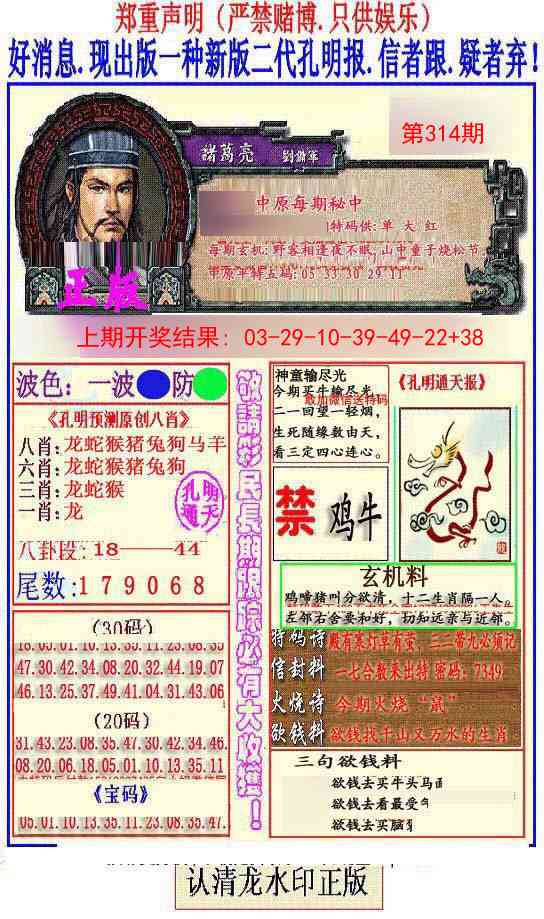 郑重声明（严禁赌博.只供娱乐）
好消息.现出版一种新版二代孔明报.信者跟.疑者弃！
第314期
諸葛亮
中原每期秘中
特码供:单 大 红
每期玄机:野客相逢夜不眠,山中童子烧松节
正版
上期开奖结果：03-29-10-39-49-22+38
波色：一波 防
《孔明预测原创八肖》
八肖:龙蛇猴猪兔狗马羊
六肖:龙蛇猴猪兔狗
三肖:龙蛇猴
一肖:龙
孔明
通天
八卦段:18——44
尾数:179068
(30码)
18.03.01.10.13.35.11.23.08.35
47.30.42.34.08.20.32.44.19.07
46.13.25.37.49.41.04.31.43.06
(20码)
31.43.23.08.35.47.30.42.34.46.
08.20.06.18.05.01.10.13.35.11
《宝码》
05.01.10.13.35.11.23.08.35.47.
敬請彩民長期跟踪必有大收獲！
神童输尽光
今期买牛输尽光,
敢加微信送特码
二一回望一轻烟,
生死随缘数由天,
看三定四心连心。
《孔明通天报》
禁 鸡牛
玄机料
鸡啼猪叫分欲清，十二生肖隔一人。
左邻右舍要和好，切知远亲与近邻。
特码诗 殿有寒灯草有萤，三二带九必须记
信封料 一七合数乘出特 密码：7349
火烧诗 今期火烧“鼠”
欲钱料 欲钱找千山又万水的生肖
三句欲钱料
欲钱去买牛头马面
欲钱去看最受
欲钱去买脑
认清龙水印正版